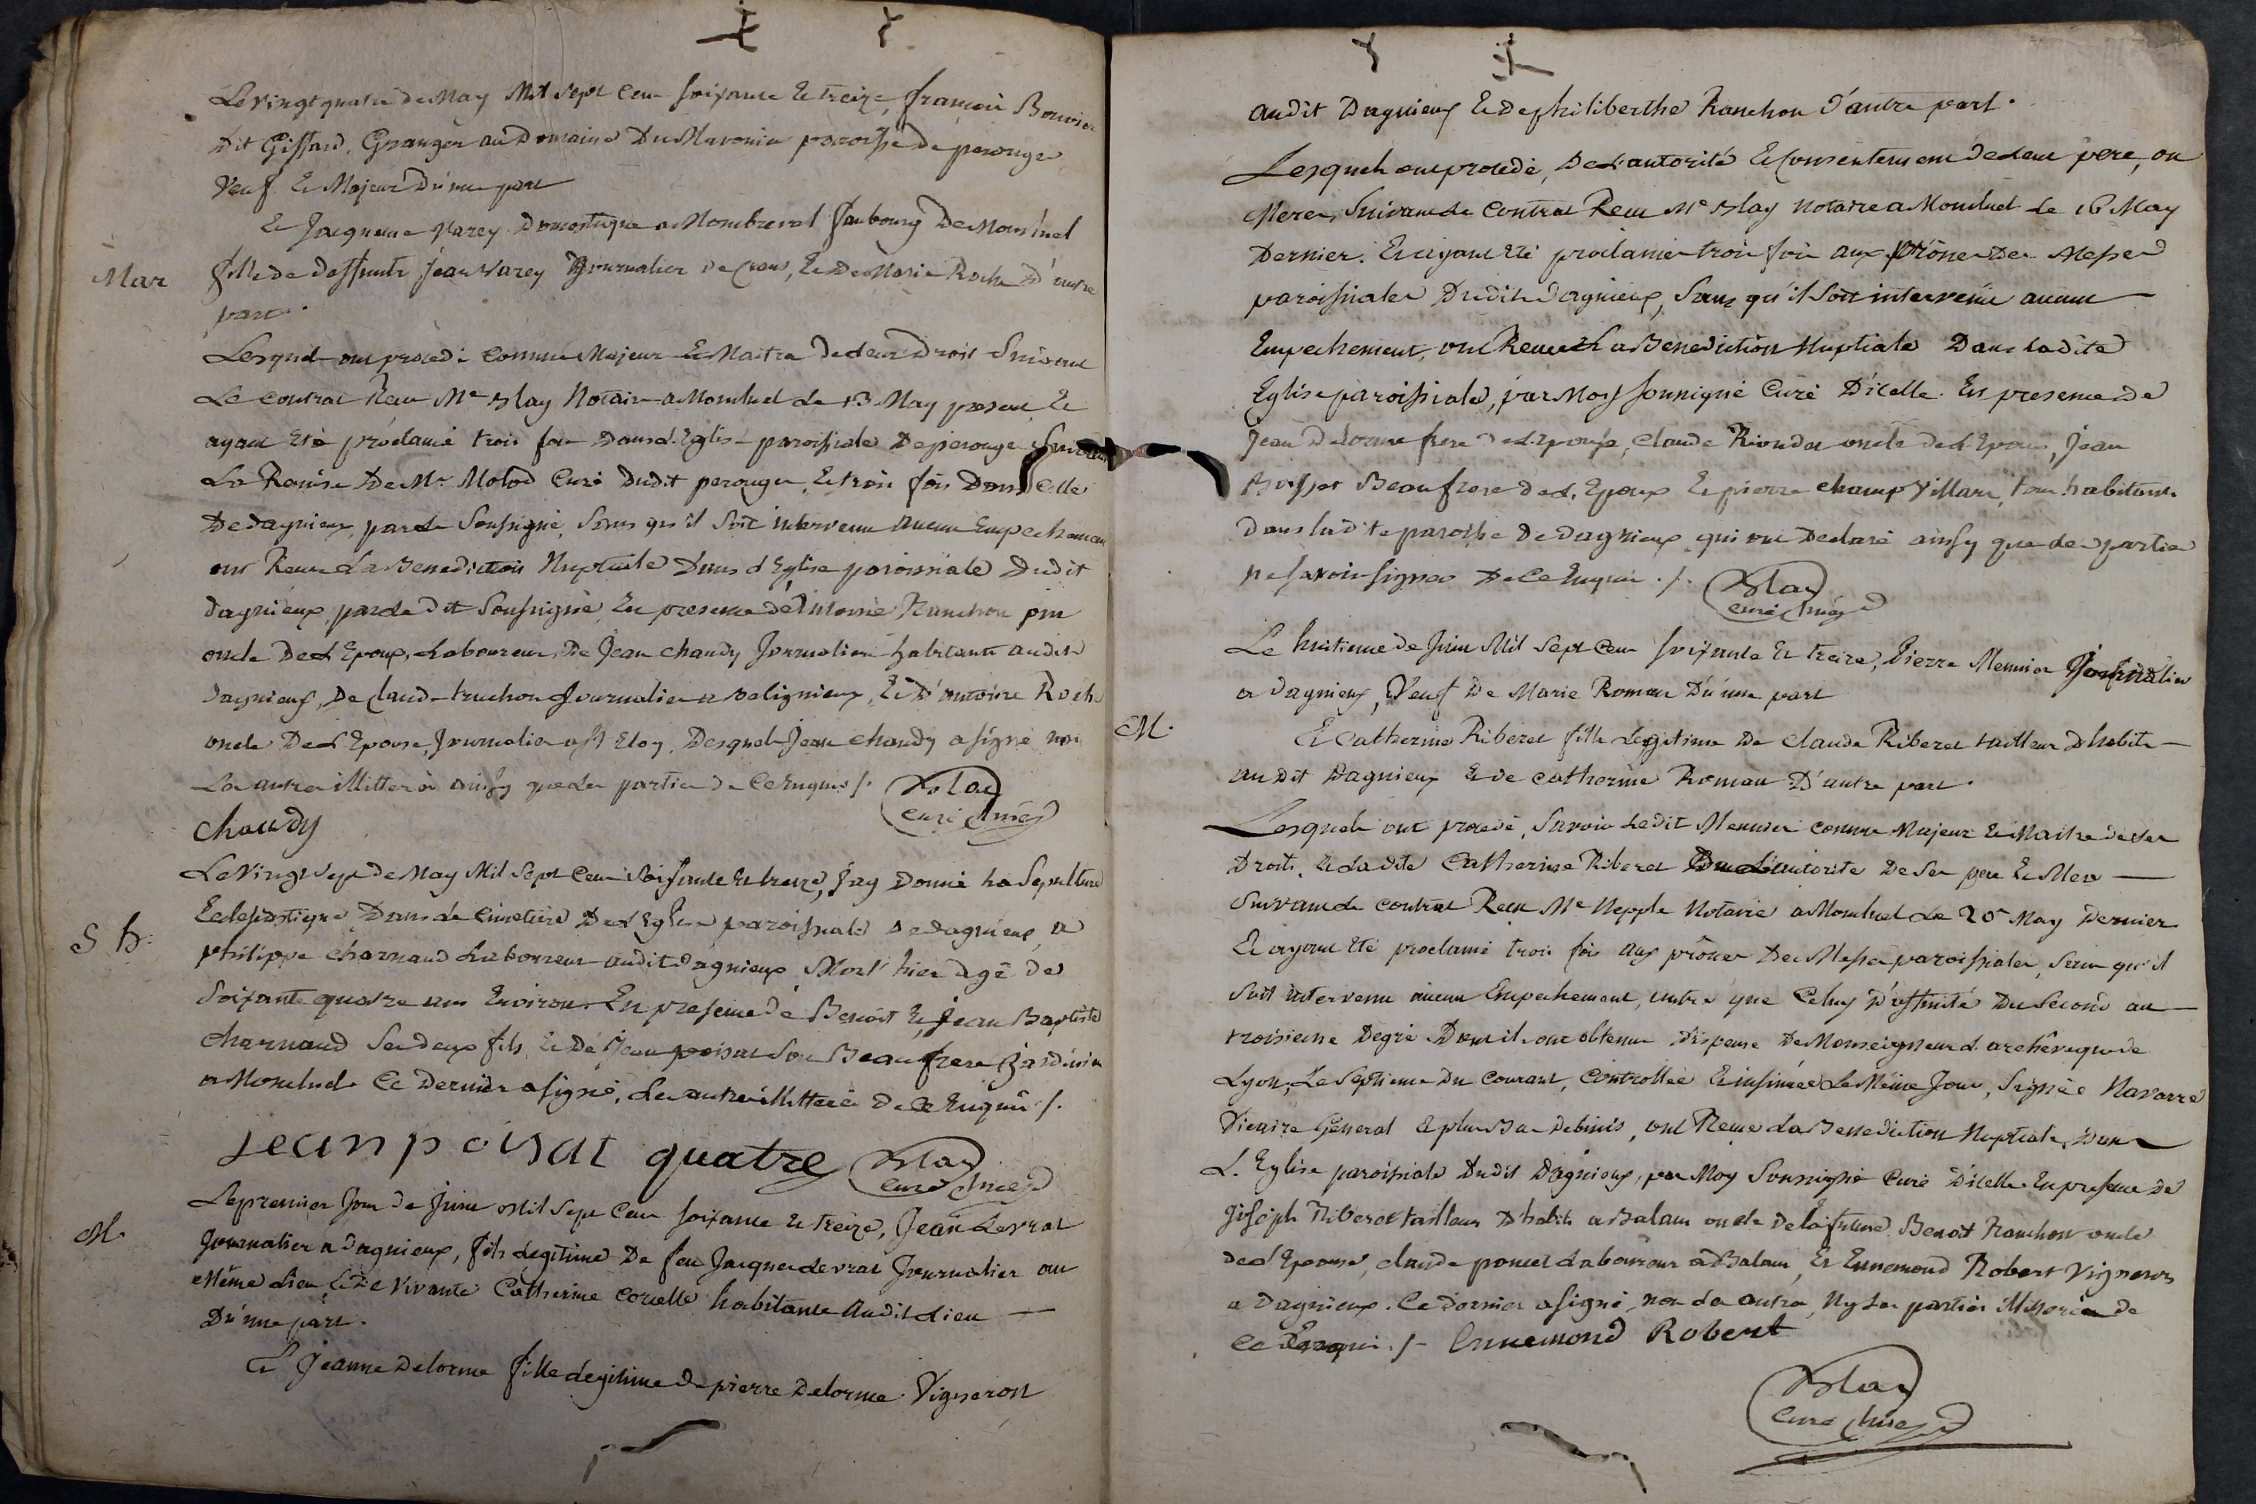 Le vingt quatre de May Mil Sept Cent soixante Et treize, francois Bouvier
dit Giffard, Granger au Domaine Du paroisse De perouge
Veuf Et Majeur D'une part
Et Jacqueme Varey Domestique a Montbreval faubourg De Montluel
Mar
fille de deffunts jean Varey Journalier de Crans, Et De Marie Roche D'autre
part.
Lesquels ont procedé comme Majeur Et Maitre de leur Droit Suivant
Le contrat Reçu Me Blay Notaire a Montluel Le 13 May present Et
ayant Eté proclamé trois fois Dans l'Eglise paroissiale De perouge Suivant
La Remise De Mr Molod Curé Dudit perouge, Et trois fois Dans Celle
De dagnieux, par Le Soussigné, Sans qu'il Soit intervenu Aucun Empechement
ont Reçu La Benediction Nuptiale Dans l'Eglise paroissiale Dudit
dagnieux, par Le dit Soussigné, En presence de Antoine Ranchon
oncle De L'Epoux, Laboureur, De Jean chaudy Journalier habitants audit
dagnieux, De Claude truchon Journalier a Balignieux, Et D'Antoine Roche
oncle De L'Epouse, Journalier a St Eloy, Desquels Jean chaudy a signé non
Les autres illitterés ainsy que Les parties De Ce Enquis /.
Blay
curé
chaudy
Le Vingt Sept de May Mil Sept Cent Soixante Et treize, J'ay Donné La Sepulture
S h.
Eclesiastique Dans Le Cimetiere De L'Eglise paroissiale De dagnieux, a
philippe charnaud Laboureur audit Dagnieux, Mort hier agé de
Soixante quatre ans Environ. En presence de Benoit Et Jean Baptiste
charnaud Ses deux fils, Et De Jean poisat Son Beau frere Jardinier
a Montluel. Ce Dernier a signé, Les autres illitterés De Ce Enquis /.
jean poisat quatre
Blay
curé
M.
Le premier Jour de Juin Mil Sept Cent soixante Et treize, Jean Levrat
Journalier a Dagnieux, fils Legitime De feu Jacques Levrat Journalier au
Même Lieu, Et De Vivante Catherine Corcelle habitante Audit Lieu
D'une part.
Et Jeanne Delorme fille Legitime De pierre Delorme Vigneron
audit Dagnieux Et De philiberthe Ranchon d'autre part.
Lesquels ont procedé, De L'autorité Et Consentement de Leur pere, ou
Mere, Suivant Le Contrat Reçu Me Blay Notaire a Montluel Le 16 May
Dernier. Et ayant Eté proclamés trois fois aux Prônes Des Messes
paroissiales Dudit Dagnieux, Sans qu'il Soit intervenu aucun
Empechement, ont Reçu La Benediction Nuptiale Dans Ladite
Eglise paroissiale, par Moy soussigné Curé D'icelle. En presence De
Jean Delorme frere De L'Epouse, Claude Rioudet oncle de L'Epoux, Jean
Beau frere de L'Epoux Et pierre champ Villard, tous habitants
Dans ladite paroisse De Dagnieux, qui ont Declaré ainsy que Les parties
ne savoir signer De Ce Enquis. /.
Blay
curé
Le huitieme de Juin Mil Sept Cent soixante Et treize, Pierre Meunier Journalier
a Dagnieux, Veuf De Marie Roman D'une part
M.
Et Catherine Riberet fille Legitime De Claude Riberet tailleur D'habits
audit Dagnieux Et De Catherine Roman D'autre part.
Lesquels ont procedé, Savoir Ledit Meunier comme Majeur Et Maitre de Ses
Droits, Et Ladite Catherine Riberet De L'autorité De Ses pere Et Mere
Suivant Le contrat Reçu Me Nepple Notaire a Montluel Le 20e May Dernier
Et ayant Eté proclamé trois fois aux prônes Des Messes paroissiales, Sans qu'il
Soit intervenu aucun Empechement, autre que Celuy D'affinité Du Second au
troisieme Degré Dont ils ont obtenu Dispense De Monseigneur L'archêveque de
Lyon, Le Septieme Du Courant, Controllée Et insinuée Le Même Jour, Signée Navarre
Vicaire General Et plus Bas Debinis, ont Reçu La Benediction Nuptiale, Dans
L'Eglise paroissiale Dudit Dagnieux, par Moy Soussigné Curé D'icelle. En presence De
Joseph Riberet tailleur D'habits a Balan oncle De la future, Benoit Ranchon oncle
de l'Epouse, claude poncet Laboureur a Balan, Et Ennemond Robert Vigneron
a Dagnieux. Ce Dernier a signé, non Les autres, Ny Les parties illitterées De
Ce Enquis. /. Ennemond Robert
Blay
curé